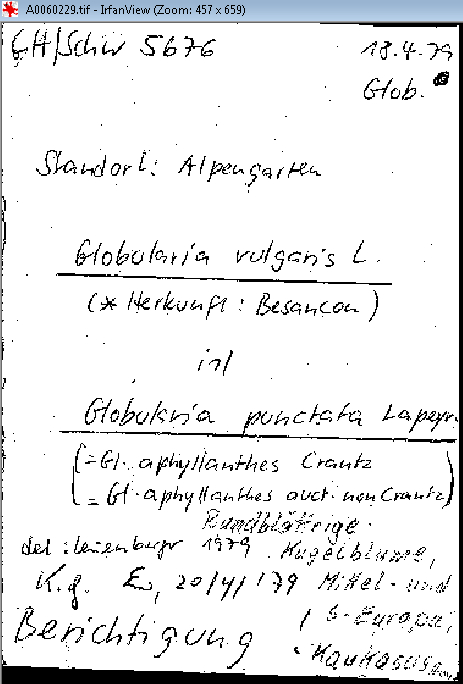 A0060229.tif - IrfanView (Zoom: 457 x 659)
CH/Schw 5676
18.4.79
Glob.
Standort: Alpengarten
Globularia vulgaris L.
(* Herkunft: Besancon)
ist
Globularia punctata Lapeyr.
(=Gl. aphyllanthes Crantz
= Gl. aphyllanthes auct. non Crantz)
Rundblättrige
det: Leuenberger 1979. Kugelblume,
K.g. 20/4/79 Mittel- und
S-Europa,
Berichtigung
Kaukasus